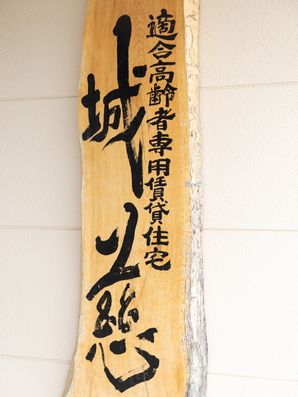 適合高齢者専用賃貸住宅
城慈